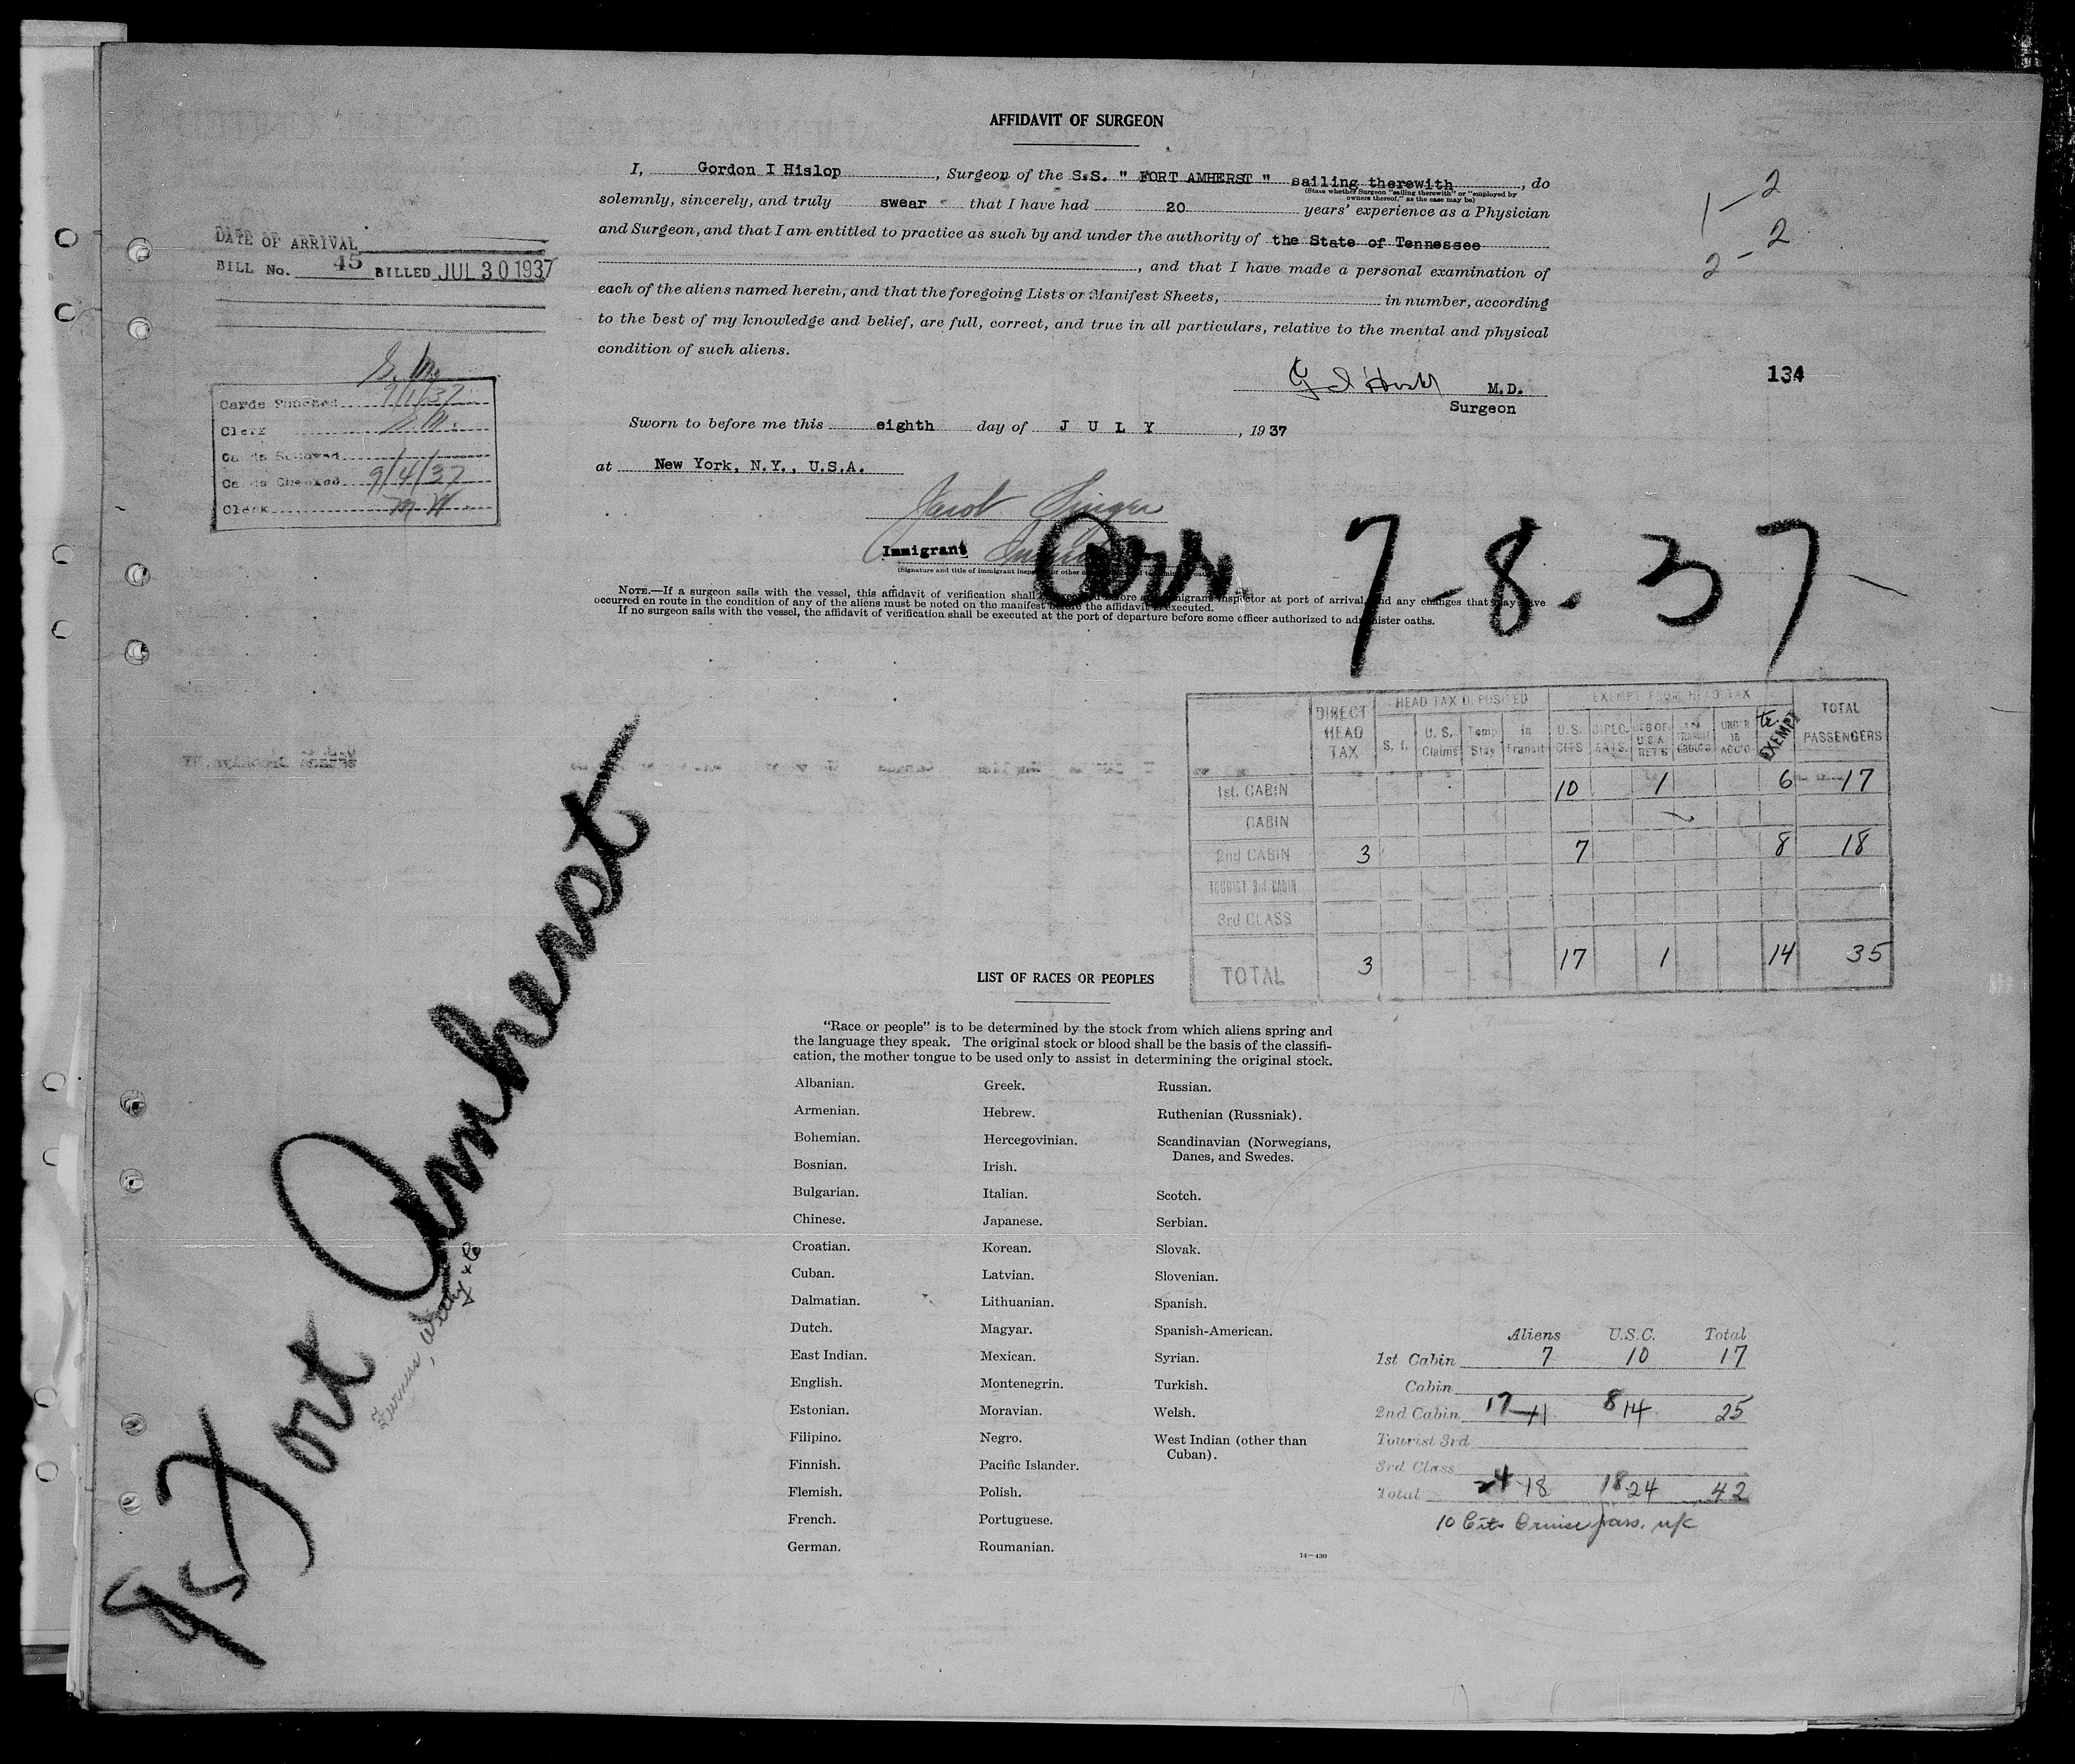 AFFIDAVIT OF SURGEON
I, Gordon I Hislop, Surgeon of the S.S. " FORT AMHERST " sailing therewith, do
(State whether Surgeon "sailing therewith" or "employed by
owners thereof," as the case may be)
solemnly, sincerely, and truly swear that I have had 20 years' experience as a Physician
and Surgeon, and that I am entitled to practice as such by and under the authority of the State of Tennessee
, and that I have made a personal examination of
each of the aliens named herein, and that the foregoing Lists or Manifest Sheets, in number, according
to the best of my knowledge and belief, are full, correct, and true in all particulars, relative to the mental and physical
condition of such aliens.
M.D.
Surgeon
Sworn to before me this eighth day of J U L Y, 1937
at New York, N.Y., U.S.A.
Jacob Singer
Immigrant
(Signature and title of immigrant inspector or other
NOTE.—If a surgeon sails with the vessel, this affidavit of verification shall before immigrant inspector at port of arrival, and any changes that may have
occurred en route in the condition of any of the aliens must be noted on the manifest before the affidavit is executed.
If no surgeon sails with the vessel, the affidavit of verification shall be executed at the port of departure before some officer authorized to administer oaths.
Arr. 7-8-37
1-2
2-2
134
DATE OF ARRIVAL
BILL No. 45 BILLED JUL 30 1937
Cards Punched 9/1/37
Clerk
Cards Removed
Cards Checked 9/4/37
Clerk
DIRECT HEAD TAX
HEAD TAX DEPOSITED
EXEMPT FROM HEAD TAX
TOTAL PASSENGERS
S. I. U. S. Claims Temp Stay In Transit U.S. CITS DIPLOMATS U.S.A. RET'S TRANSIT GROUPS UNDER 16 ACC'D EXEMPT
1st. CABIN 10 1 6 17
CABIN
2nd CABIN 3 7 8 18
TOURIST 3rd CABIN
3rd CLASS
TOTAL 3 17 1 14 35
SS Fort Amherst
Furness, Withy & Co
LIST OF RACES OR PEOPLES
"Race or people" is to be determined by the stock from which aliens spring and
the language they speak. The original stock or blood shall be the basis of the classifi-
cation, the mother tongue to be used only to assist in determining the original stock.
Albanian.
Armenian.
Bohemian.
Bosnian.
Bulgarian.
Chinese.
Croatian.
Cuban.
Dalmatian.
Dutch.
East Indian.
English.
Estonian.
Filipino.
Finnish.
Flemish.
French.
German.
Greek.
Hebrew.
Hercegovinian.
Irish.
Italian.
Japanese.
Korean.
Latvian.
Lithuanian.
Magyar.
Mexican.
Montenegrin.
Moravian.
Negro.
Pacific Islander.
Polish.
Portuguese.
Roumanian.
Russian.
Ruthenian (Russniak).
Scandinavian (Norwegians,
Danes, and Swedes.
Scotch.
Serbian.
Slovak.
Slovenian.
Spanish.
Spanish-American.
Syrian.
Turkish.
Welsh.
West Indian (other than
Cuban).
14—430
Aliens U.S.C. Total
1st Cabin 7 10 17
Cabin
2nd Cabin 17 11 8 14 25
Tourist 3rd
3rd Class
Total 24 18 18 24 42
10 Cits Cruise pass.